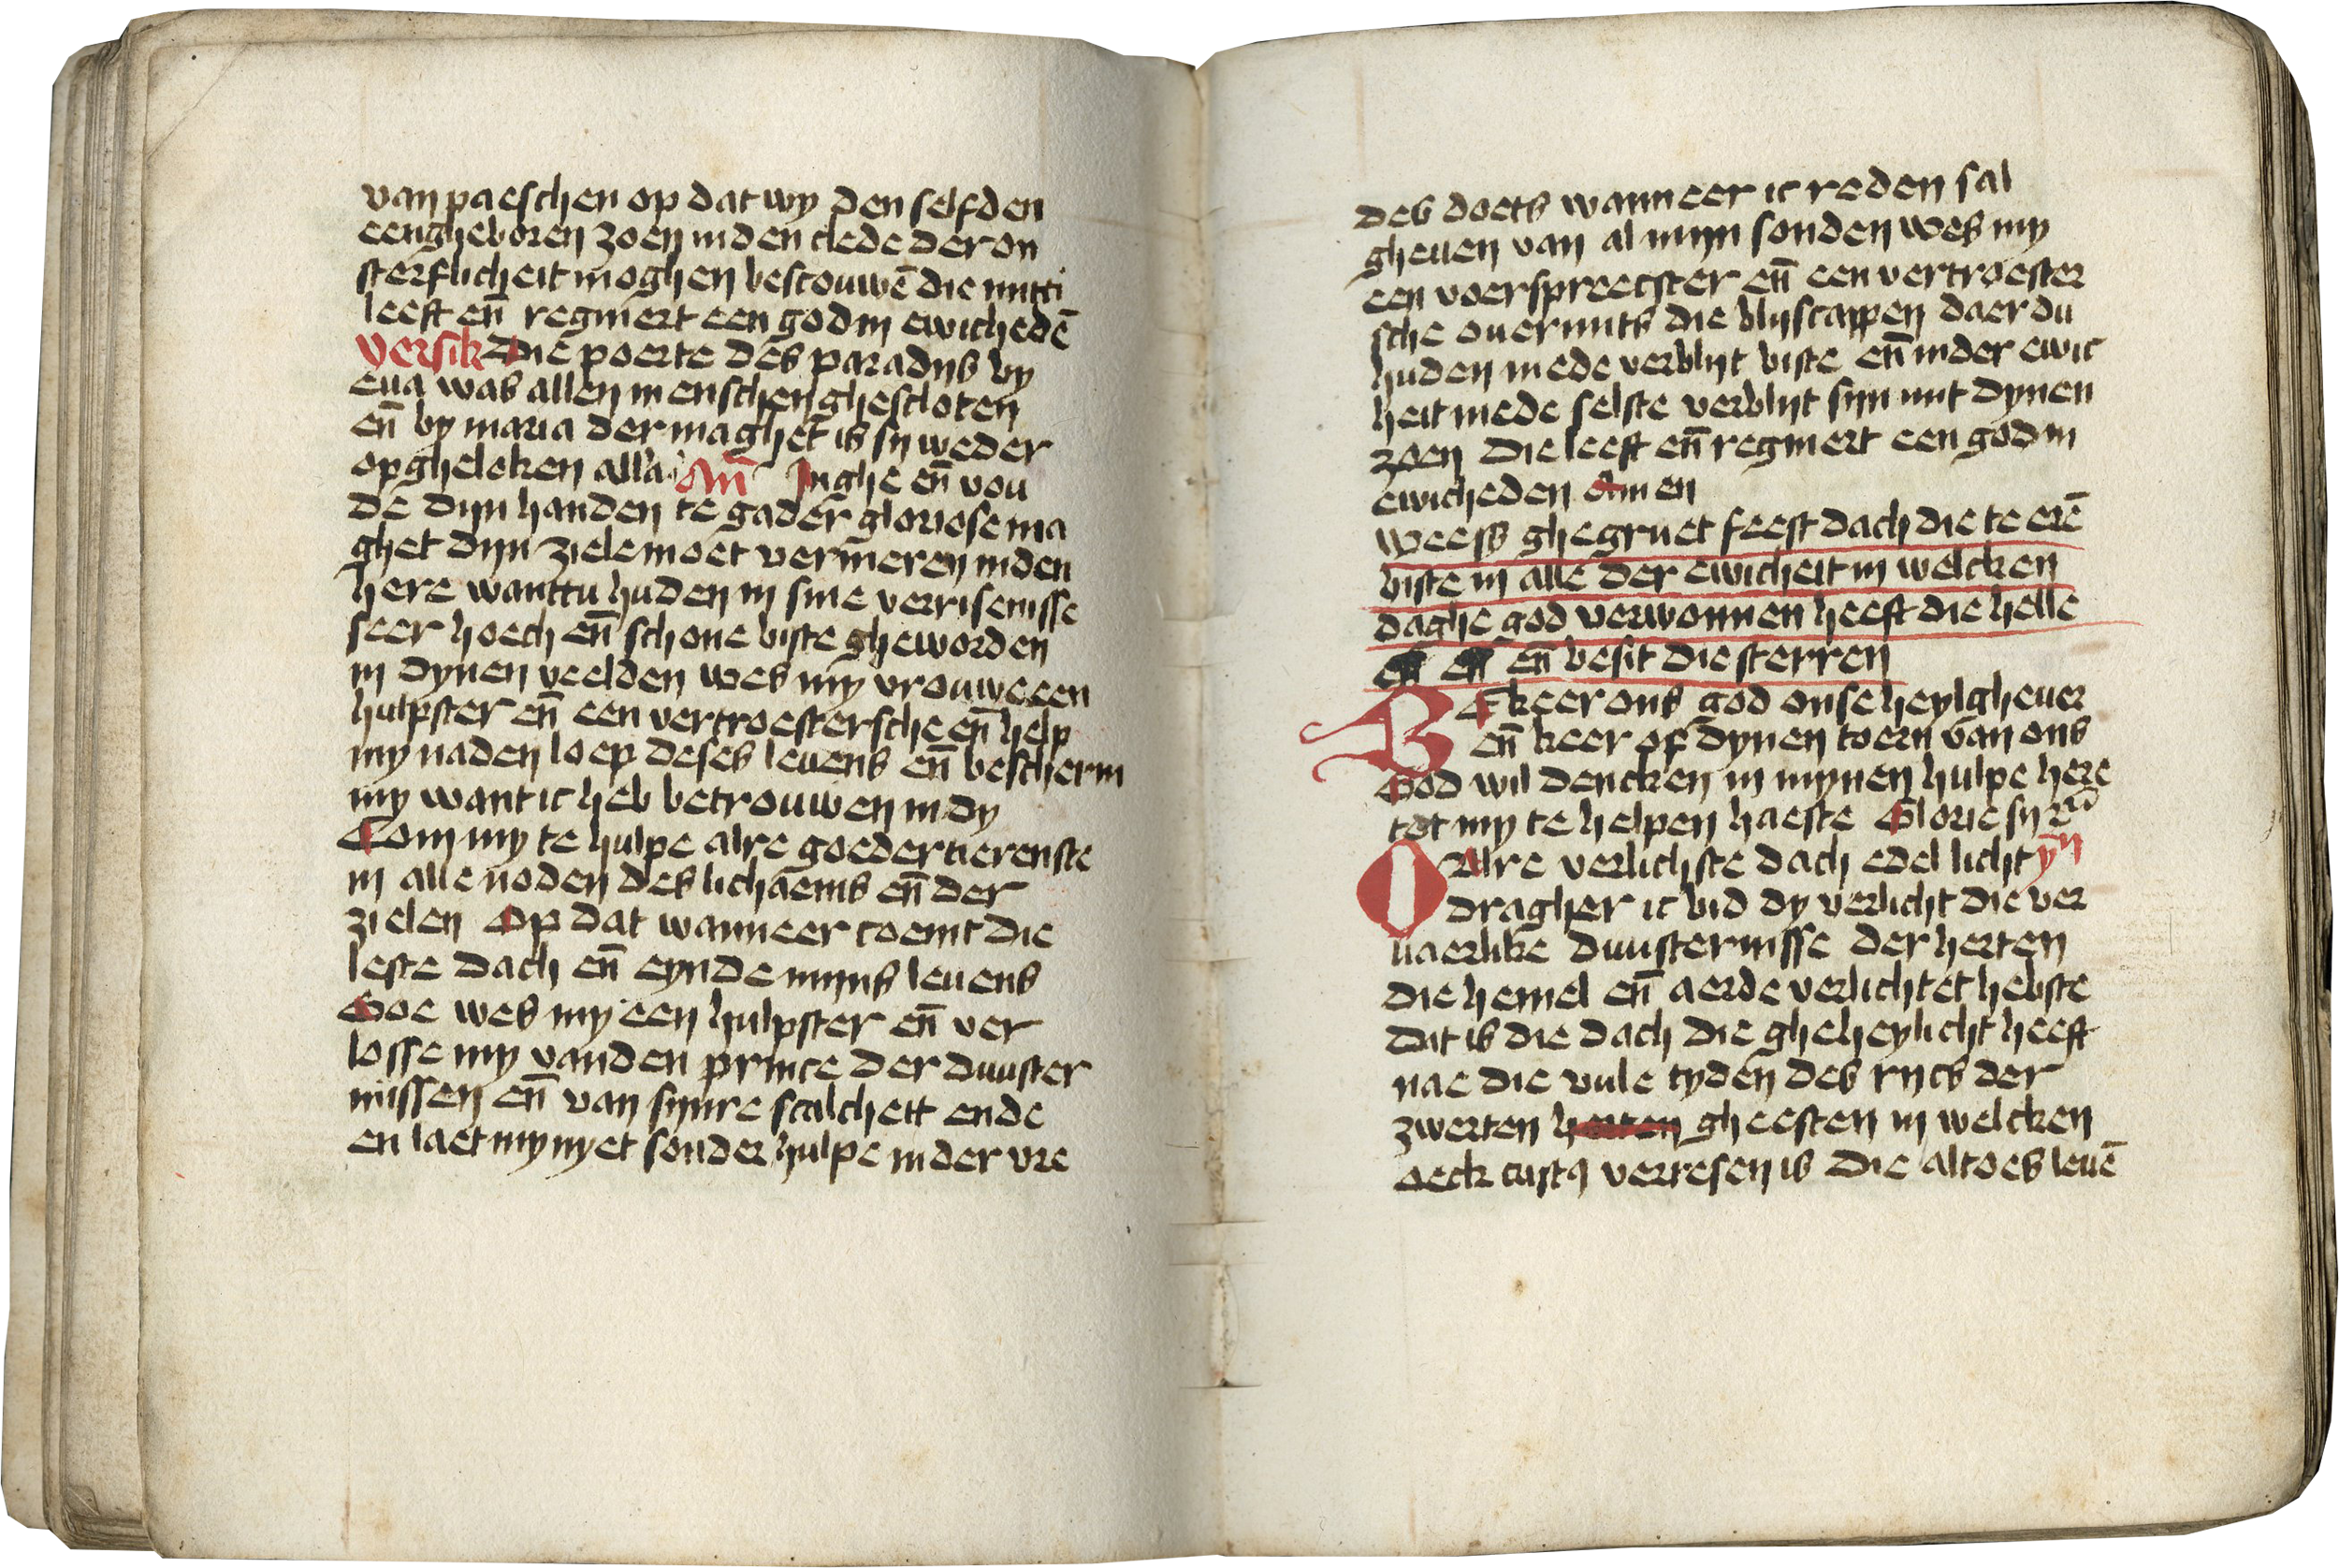 van paeschen op dat wy den selfden
eengheboren zoen in den clede der on
sterflicheit moghen bescouwē die mitti
leeft en̄ regniert een god in ewichedē
Versik Die poerte des paradijs by
eua was allen menschen ghescloten
en̄ by maria der maghet is sy weder
opgheloken alla an̄ Inghe en̄ vou
de dijn handen te gader gloriose ma
ghet dijn ziele moet vermeren inden
here wanttu huden in sine verrisenisse
seer hoech en̄ schone biste gheworden
in dynen veelden wes my vrouwe een
hulpster en̄ een vertroestersche en̄ help
my naden loep deses leuens en̄ bescherm
my want ic heb betrouwen in dy
Com my te hulpe alre goedertierenste
in alle noden des lichaems en̄ der
zielen Op dat wanneer coemt die
leste dach en̄ eynde mijns leuens
Soe wes my een hulpster en̄ ver
losse my vanden prince der duuster
nissen en̄ van synre scalcheit ende
en laet my nyet sonder hulpe in der vre
des doets wanneer ic reden sal
gheuen van al mijn sonden wes my
een voerspreecster en̄ een vertroester
sche ouermits die blijscappen daer du
huden mede verblijt biste en̄ in der ewic
heit mede selste verblijt sijn mit dynen
zoen die leeft en̄ regniert een god in
ewicheden Amen
weess ghegruet feestdach die te erē
biste in alle der ewicheit in welcken
daghe god verwonnen heeft die helle
en̄ besit die sterren
Bekeer ons god onse heylgheuer
en̄ keer of dynen toern van ons
God wil dencken in mynen hulpe here
tot my te helpen haeste Glorie sy
O Alre verlichste dach edel licht yn̄
dragher ic bid dy verlicht die ver
uaerlike duusternisse der herten
die hemel en̄ aerde verlichtet hebste
Dit is die dach die gheheylicht heeft
nae die vule tyden des rijcs der
zwerten herten gheesten in welcken
oeck verresen is Die altoes leuē